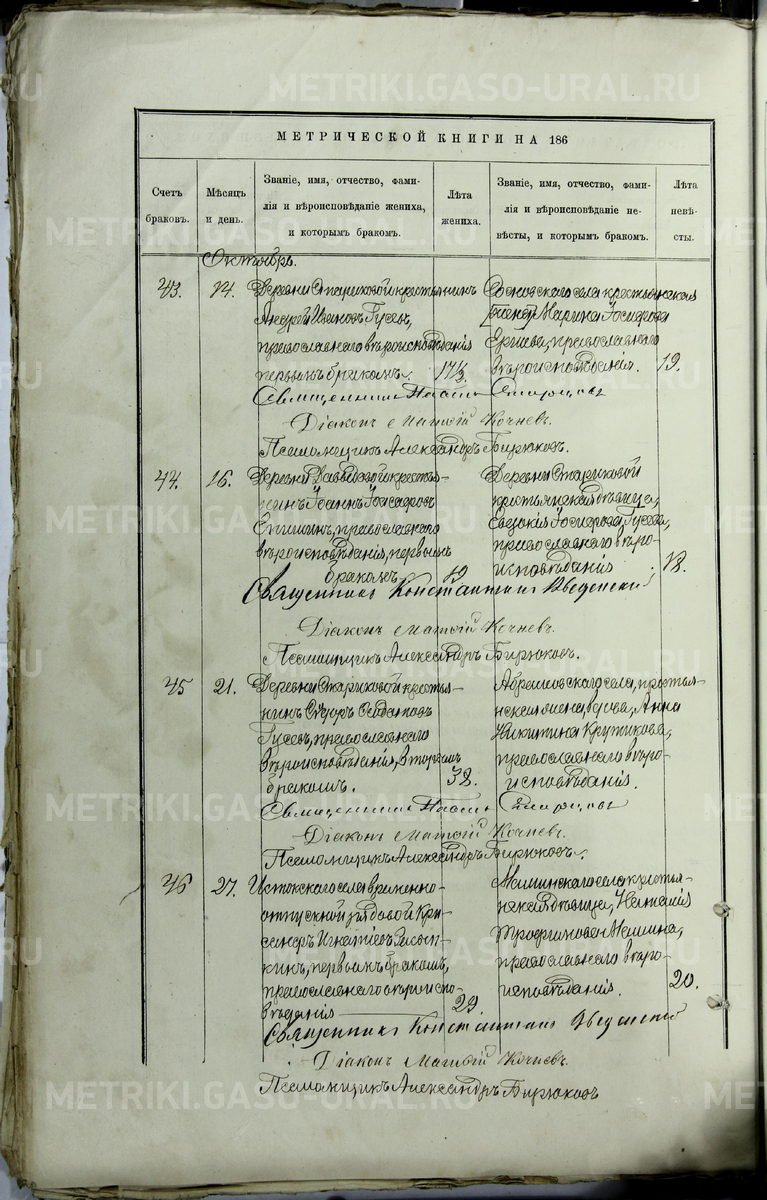 МЕТРИЧЕСКОЙ КНИГИ НА 186
Счетъ браковъ.
Мѣсяцъ и день.
Званіе, имя, отчество, фами-
лія и вѣроисповѣданіе жениха,
и которымъ бракомъ.
Лѣта жениха.
Званіе, имя, отчество, фами-
лія и вѣроисповѣданіе не-
вѣсты, и которымъ бракомъ.
Лѣта невѣ-
сты.
Октябрь.
43. 14. Деревни Стариковой крестьянинъ
Андрей Ивановъ Гусевъ,
православнаго вѣроисповѣданія
первымъ бракомъ. 17½
Сосновскаго села крестьянская
Марина Іосифова
православнаго
вѣроисповѣданія. 19.
Священникъ
Діаконъ Матѳій Кочневъ.
Псаломщикъ Александръ Бирюковъ.
44. 16. Деревни Давыдовой кресть-
янинъ Іоаннъ Іосифовъ
православнаго
вѣроисповѣданія, первымъ
бракомъ 19
Деревни Стариковой
крестьянская дѣвица,
Евдокія Іосифова Гусева,
православнаго вѣро-
исповѣданія 18.
Священникъ Константинъ Введенскій
Діаконъ Матѳій Кочневъ.
Псаломщикъ Александръ Бирюковъ.
45 21. Деревни Стариковой кресть-
янинъ
Гусевъ, православнаго
вѣроисповѣданія, вторымъ
бракомъ. 38.
села, крестьян-
ская вдова, Анна
Никитина Крутикова,
православнаго вѣро-
исповѣданія.
Священникъ
Діаконъ Матѳій Кочневъ.
Псаломщикъ Александръ Бирюковъ.
46 27. Истокскаго села временно-
отпускной рядовой Кри-
санѳъ Игнатіевъ
первымъ бракомъ,
православнаго вѣроиспо-
вѣданія 29.
села крестья-
нская дѣвица, Наталія
Трофимова
православнаго вѣро-
исповѣданія. 20.
Священникъ Константинъ Введенскій
Діаконъ Матѳій Кочневъ.
Псаломщикъ Александръ Бирюковъ
METRIKI.GASO-URAL.RU